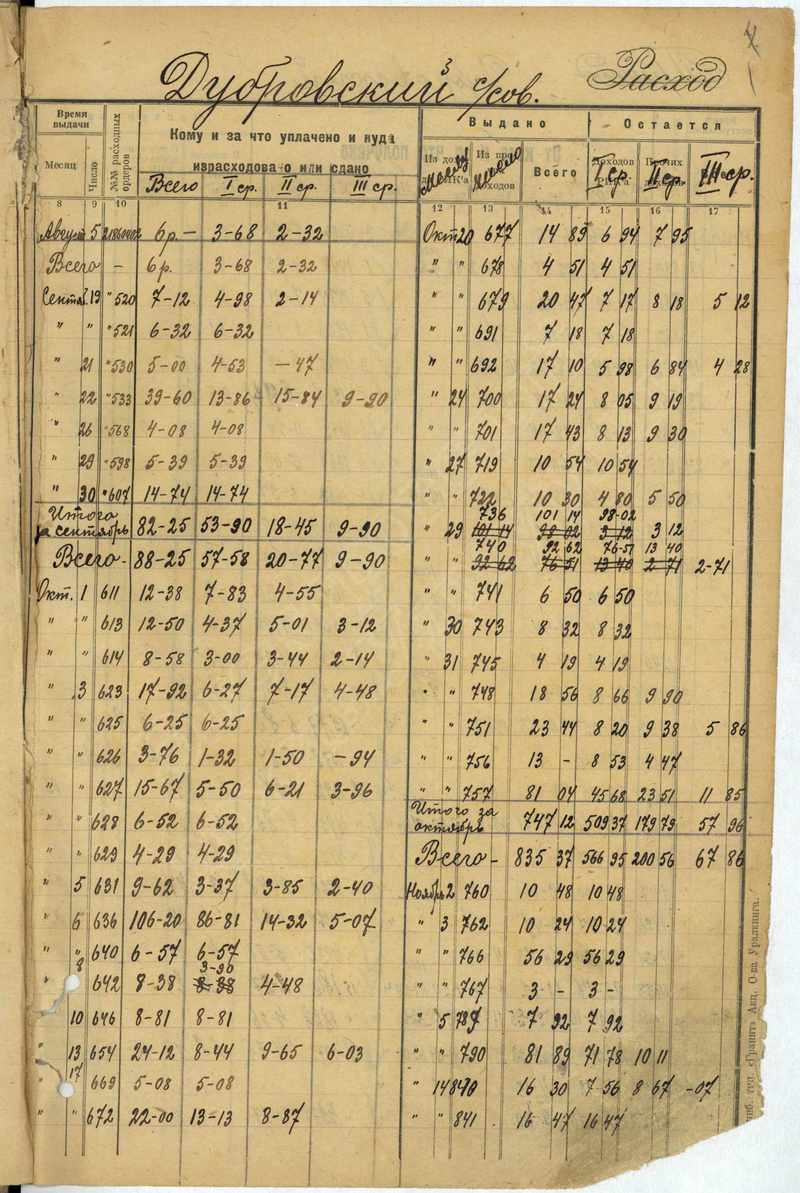 4
Дубровский с/сов. Расход
3
Время выдачи
Месяц.
Число
№№ расходных ордеров
Кому и за что уплачено и куда
израсходовано или сдано
Всего I ср. II ср. III ср.
Выдано
Остается
Всего
I ср. II ср. III ср.
8 9 10 11 12 13 14 15 16 17
Август 5 6р.— 3-68 2-32
Всего — 6р. 3-68 2-32
Сентяб. 19 " 520 7-12 4-98 2-14
" " " 521 6-32 6-32
" 21 " 530 5-00 4-53 —47
" 22 " 533 39-60 13-86 15-84 9-90
" 26 " 568 4-08 4-08
" 29 " 598 5-39 5-39
" 30 " 607 14-74 14-74
Итого
за сентябрь 82-25 53-90 18-45 9-90
Всего- 88-25 57-58 20-77 9-90
Окт. 1 611 12-38 7-83 4-55
" " 613 12-50 4-37 5-01 3-12
" " 614 8-58 3-00 3-44 2-14
" 3 623 17-92 6-27 7-17 4-48
" " 625 6-25 6-25
" " 626 3-76 1-32 1-50 —94
" " 627 15-67 5-50 6-21 3-96
" " 628 6-52 6-52
" " 629 4-29 4-29
" 5 631 9-62 3-37 3-85 2-40
" 6 636 106-20 86-81 14-32 5-07
" " 640 6-57 6-57
" 8 642 8-38 3-90 4-48
" 10 646 8-81 8-81
" 13 654 24-12 8-44 9-65 6-03
" 17 669 5-08 5-08
" " 672 22-00 13-13 8-87
Окт 20 677 14 89 6 94 7 95
" " 678 4 51 4 51
" " 679 20 47 7 17 8 18 5 12
" " 691 7 18 7 18
" " 692 17 10 5 98 6 84 4 28
" 24 700 17 24 8 05 9 19
" " 701 17 43 8 13 9 30
" 27 719 10 54 10 54
" " 722 10 30 4 80 5 50
736 101 14 98-02
" 29 101 14 98 02 3 12 3 12
740 92 62 76-51 13 40
92 62 76 51 13 40 2 71 2-71
" " 741 6 50 6 50
" 30 743 8 32 8 32
" 31 745 4 19 4 19
" " 748 18 56 8 66 9 90
" " 751 23 44 8 20 9 38 5 86
" " 756 13 - 8 53 4 47
" " 757 81 04 45 68 23 51 11 85
Итого за
октябрь 747 12 509 37 179 79 57 96
Всего- 835 37 566 95 200 56 67 86
Ноябрь 2 760 10 48 10 48
" 3 762 10 24 10 24
" " 766 56 29 56 29
" " 767 3 - 3 -
" 5 789 7 92 7 92
" " 790 81 89 71 78 10 11
" 14 840 16 30 7 56 8 67 -07
" " 841 16 47 16 47
тип. «Гранит» Акц. О-ва Уралкнига.